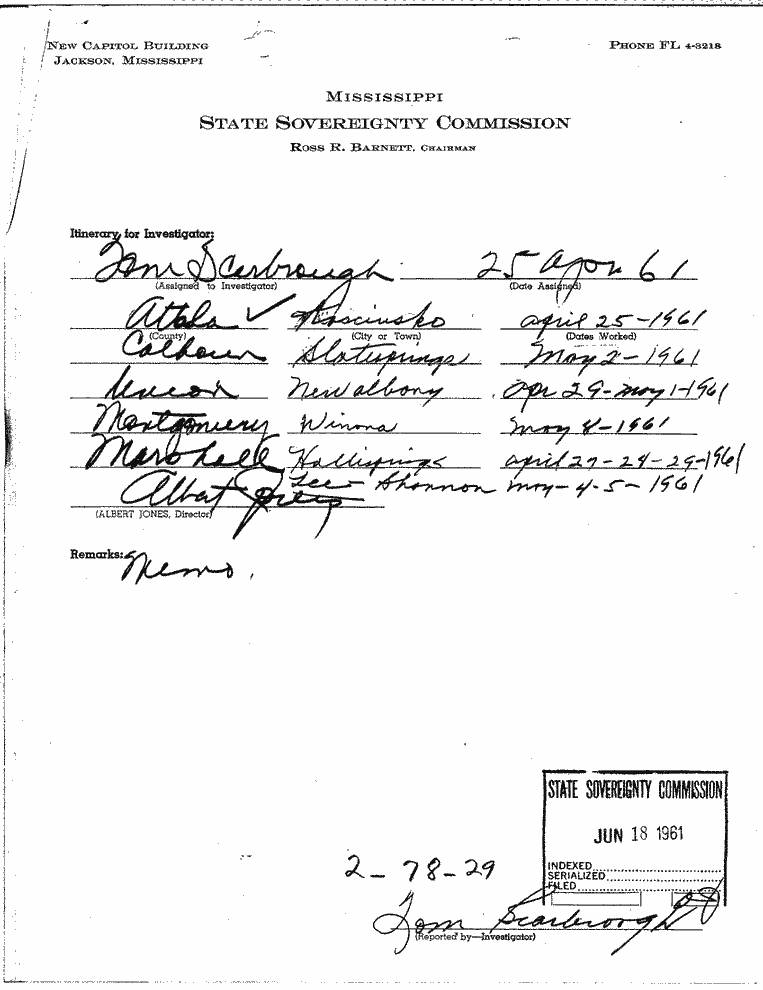 NEW CAPITOL BUILDING
JACKSON, MISSISSIPPI
PHONE FL 4-3218
MISSISSIPPI
STATE SOVEREIGNTY COMMISSION
ROSS R. BARNETT, CHAIRMAN
Itinerary for Investigator:
Tom Scarbrough 25 Apr 61
(Assigned to Investigator) (Date Assigned)
Attala ✓ Kosciusko april 25-1961
(County) (City or Town) (Dates Worked)
Calhoun Slatesprings May 2-1961
Union New albany Apr 29-may 1-1961
Montgomery Winona may 8-1961
Marshall Hollisprings april 27-28-29-1961
Lee - Shannon may-4-5-1961
Albert Jones
(ALBERT JONES, Director)
Remarks:
Memo.
STATE SOVEREIGNTY COMMISSION
JUN 18 1961
INDEXED
SERIALIZED
FILED
2-78-29
Tom Scarbrough
(Reported by—Investigator)